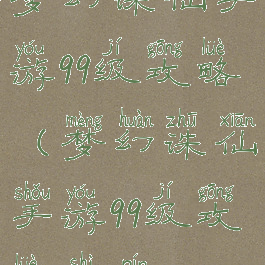 yóu jí gōng lüè
游99级攻略
mèng huàn zhū xiān
(梦幻诛仙
shǒu yóu jí gōng
手游99级攻